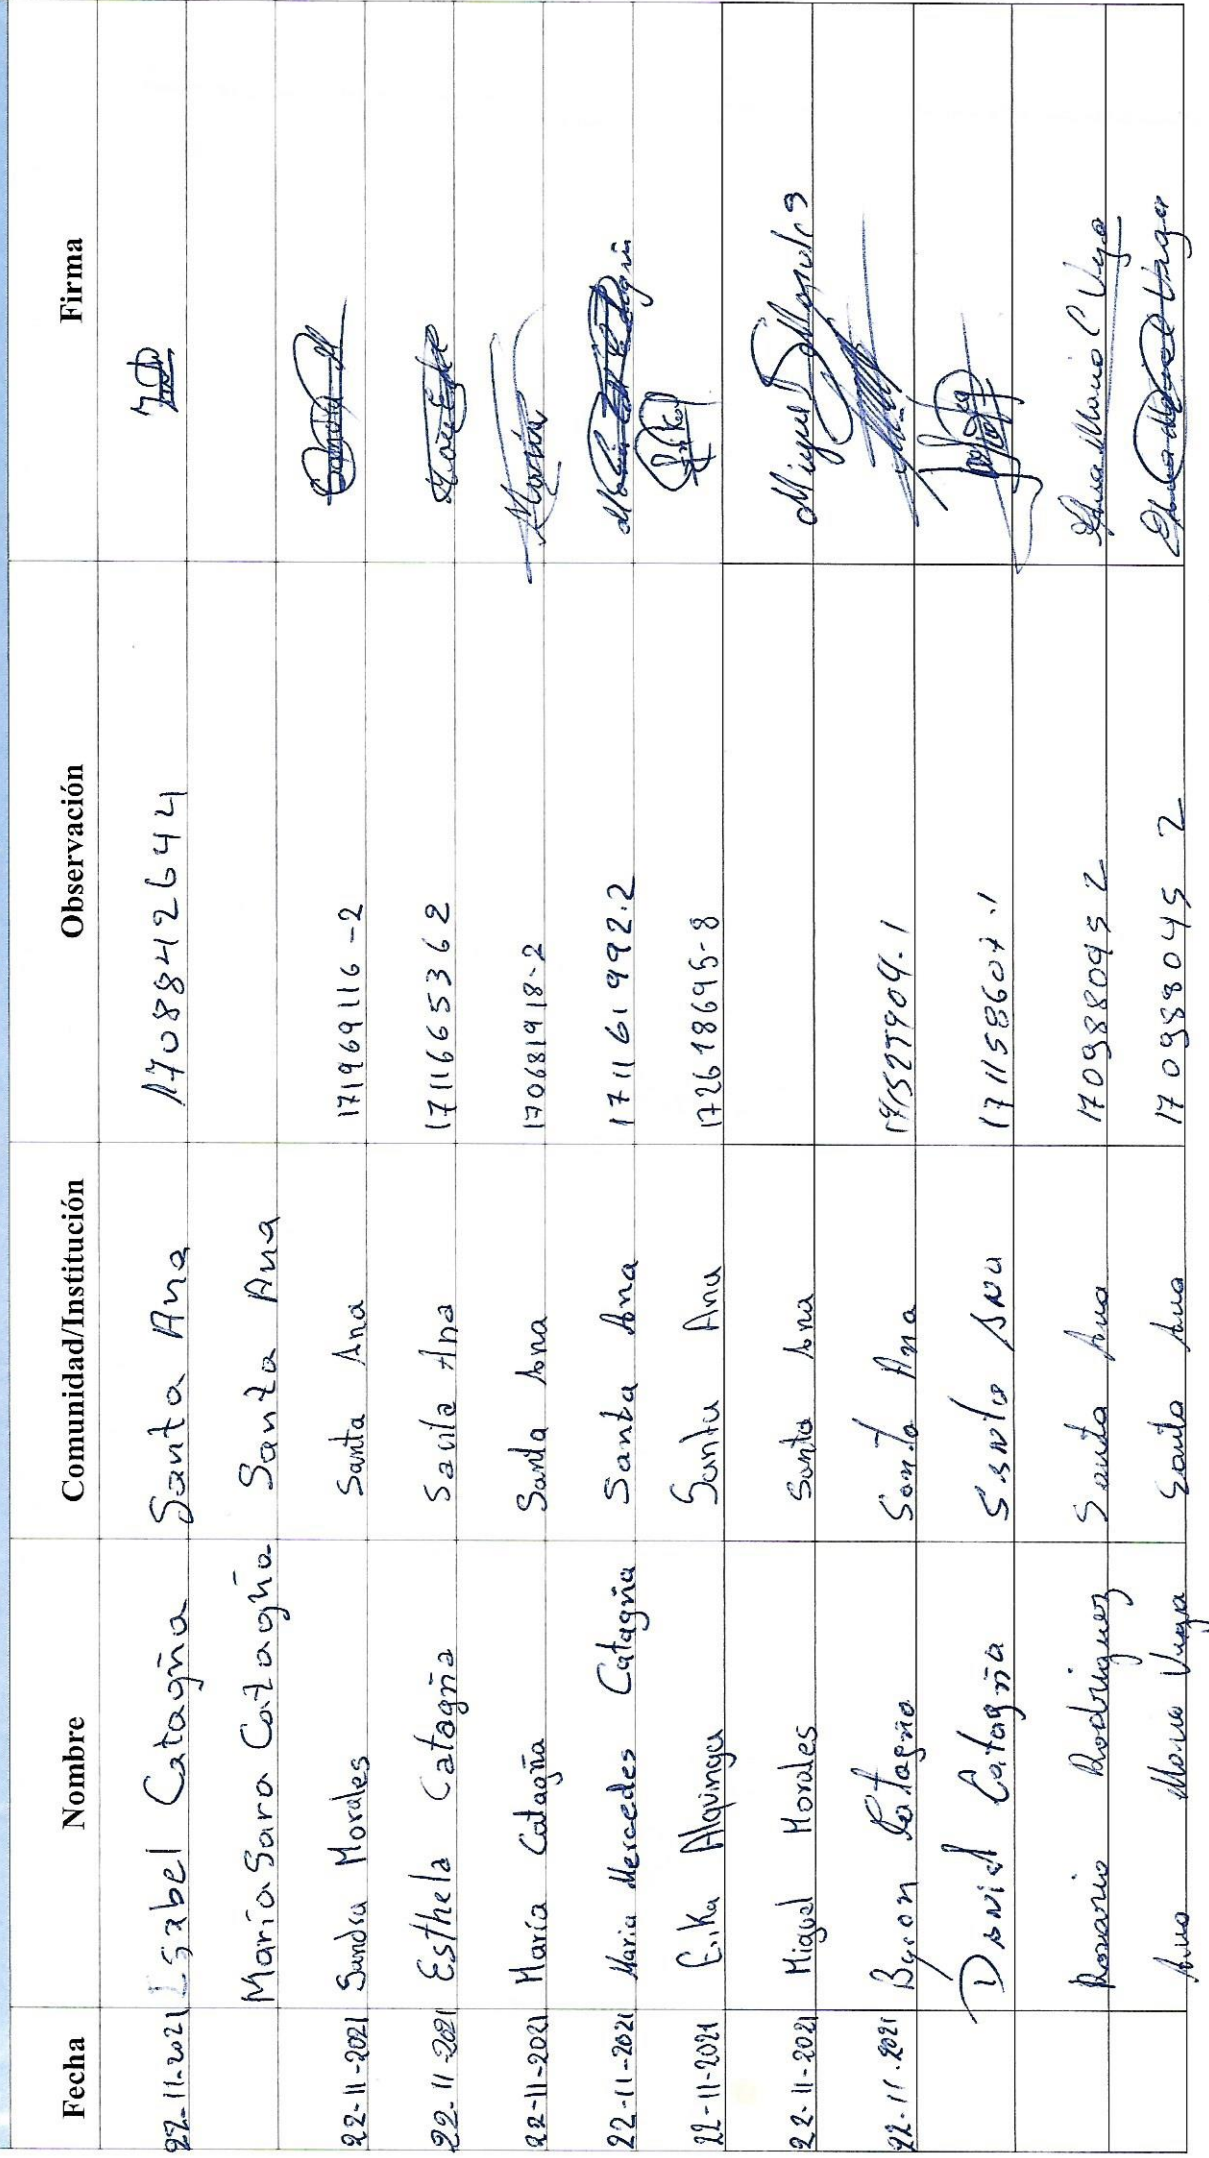 Fecha Nombre Comunidad/Institución Observación Firma
22-11-2021 Isabel Catagña Santa Ana 1708842644
María Sara Catagña Santa Ana
22-11-2021 Sandra Morales Santa Ana 171969116-2 Sandra M
22-11-2021 Esthela Catagña Santa Ana 1711665362
22-11-2021 María Catagña Santa Ana 170681918-2 María
22-11-2021 Maria Mercedes Catagña Santa Ana 171161992.2
22-11-2021 Erika Alquinga Santa Ana 172618695-8 Erika
22-11-2021 Miguel Morales Santa Ana Miguel Morales
22.11.2021 Byron Catagña Santa Ana
David Catagña Santa Ana
Rosario Rodriguez Santa Ana 170988045 2 Ana Maria C Vega
Ana Maria Vega Santa Ana 170988045 2